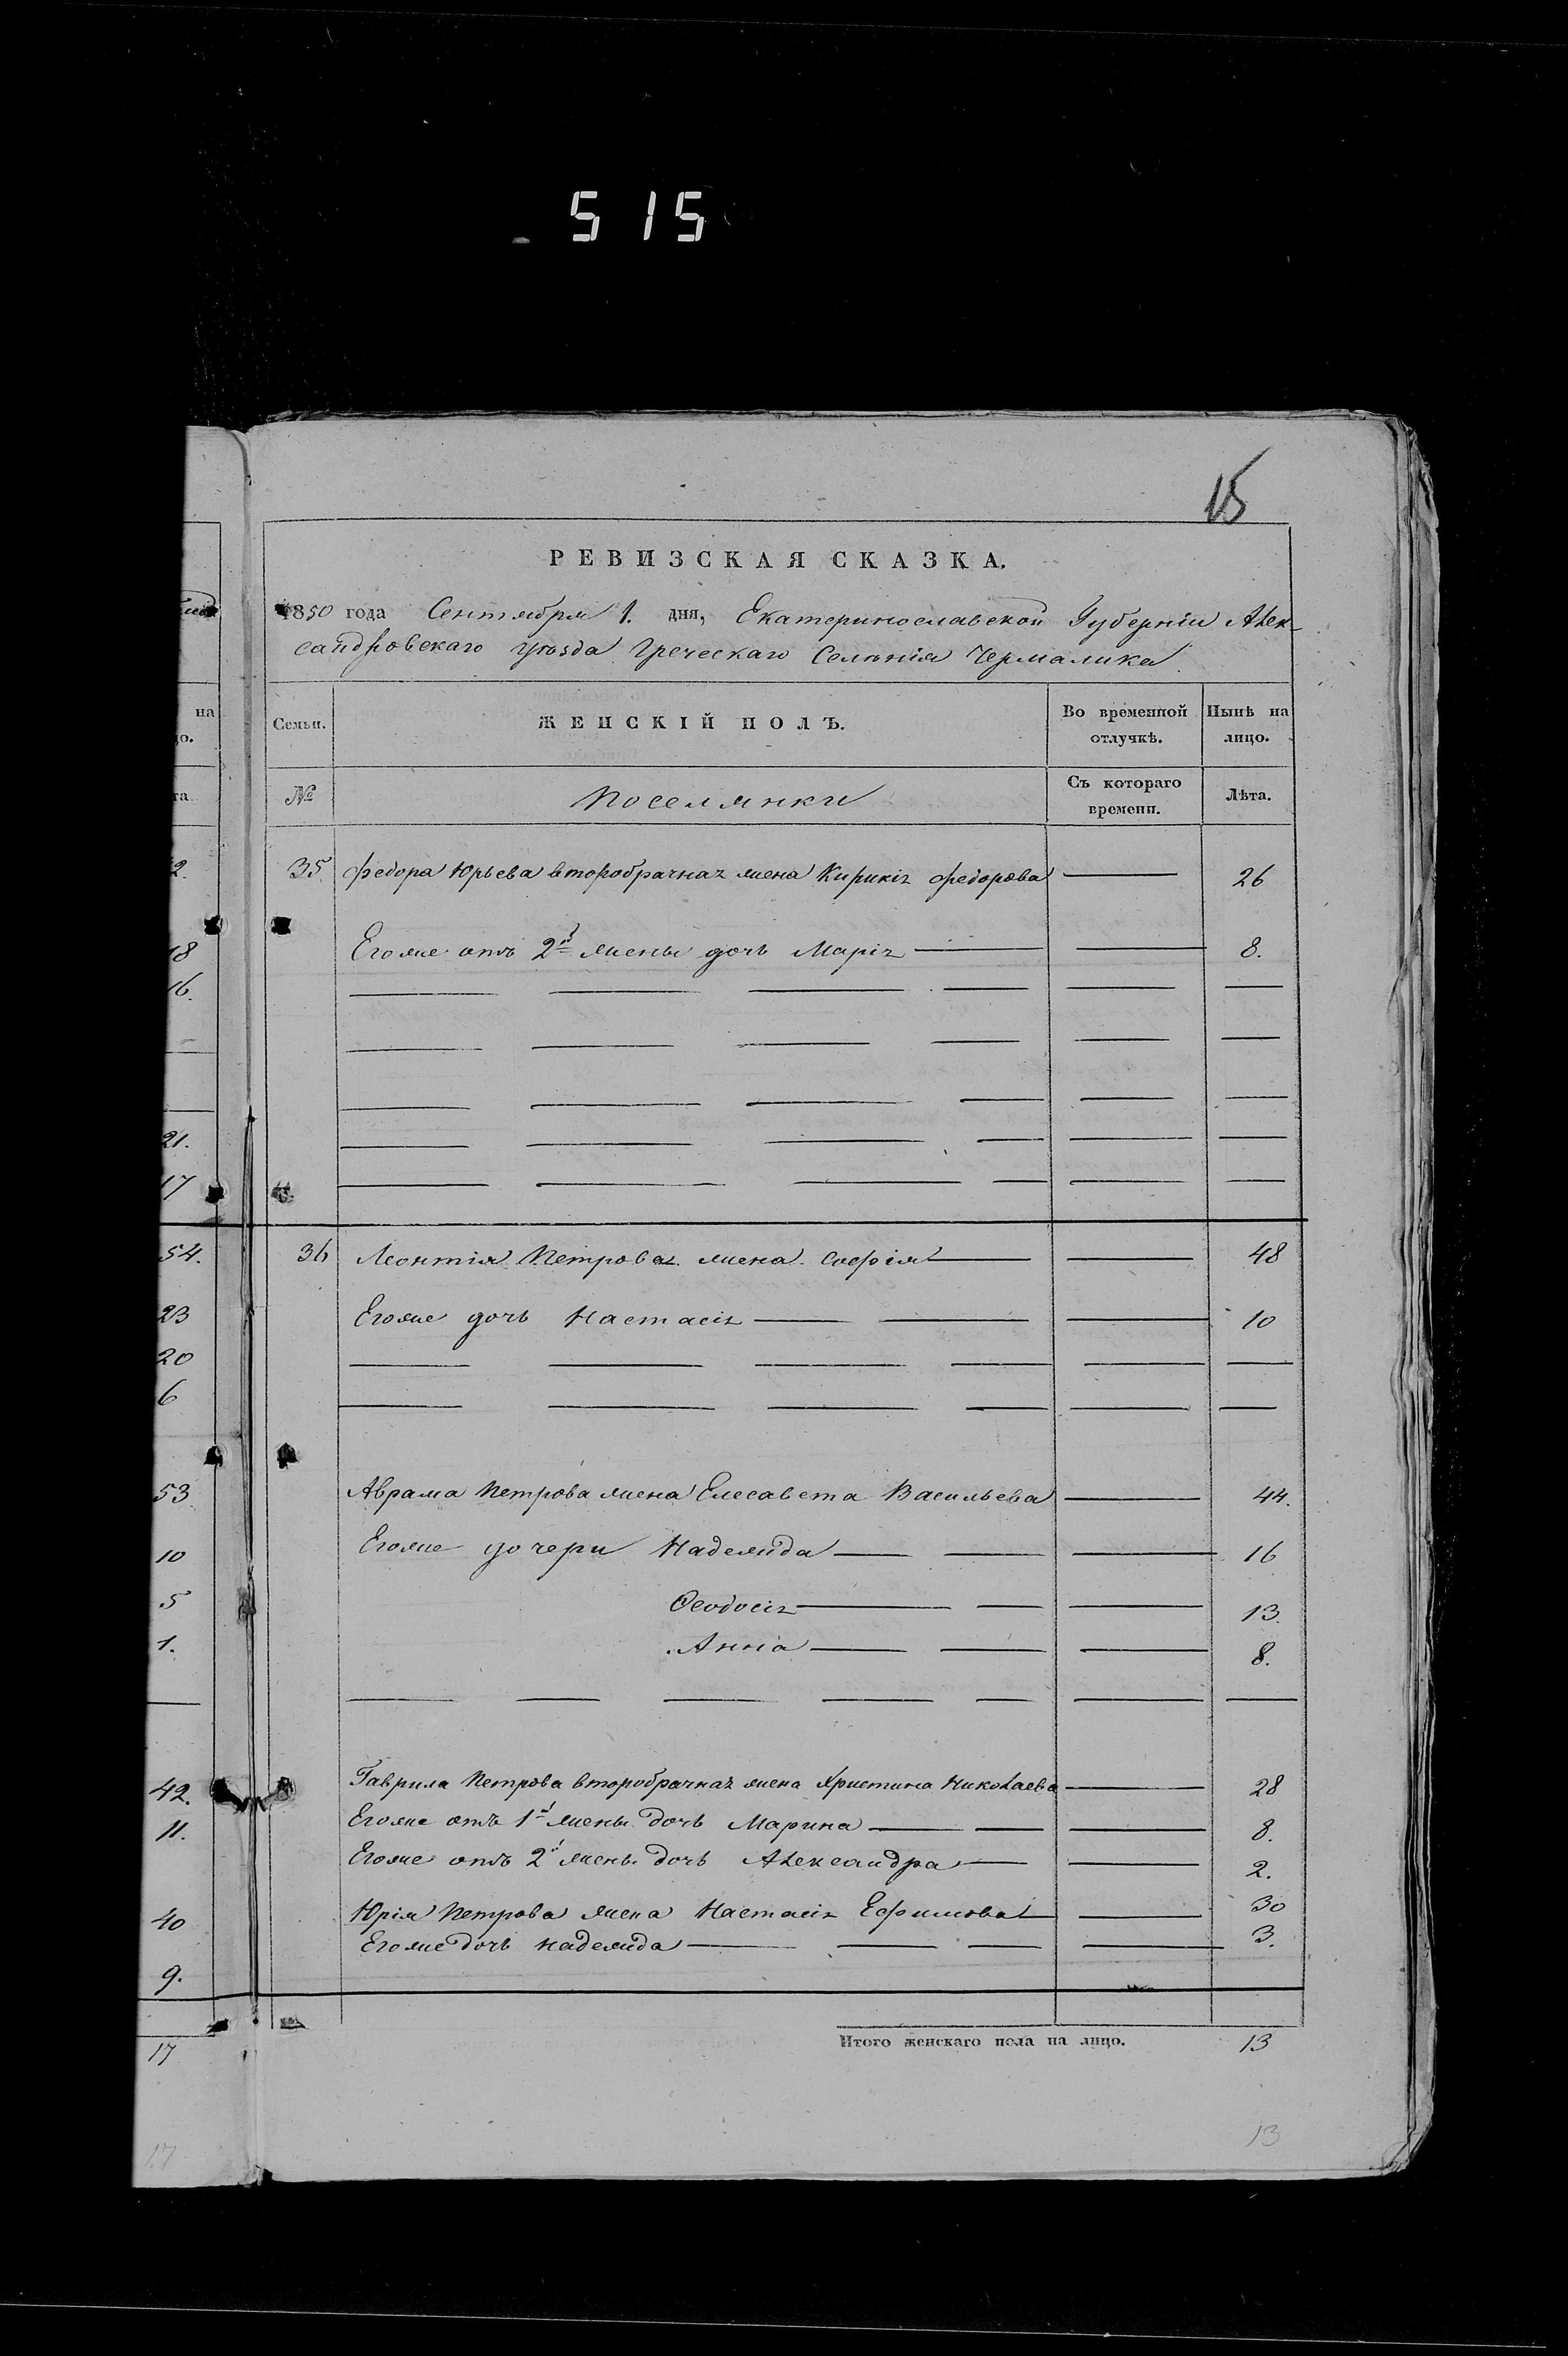 515
15
РЕВИЗСКАЯ СКАЗКА.
1850 года Сентября 1. дня, Екатеринославской Губерніи Алек-
сандровскаго уѣзда Греческаго Селенія Чермалика
Семьи. ЖЕНСКІЙ ПОЛЪ. Во временной отлучкѣ. Нынѣ на лицо.
№ Поселянки Съ котораго времени. Лѣта.
35. Федора Юрьева второбрачная жена Кирикія Федорова 26
Егоже отъ 2й жены дочь Марія 8.
36 Леонтія Петрова жена Софія 48
Егоже дочь Настасія 10
Аврама Петрова жена Елесавета Васильева 44.
Егоже дочери Надежда 16
Ѳеодосія 13.
Анна 8.
Гаврила Петрова второбрачная жена Христина Николаева 28
Егоже отъ 1й жены дочь Марина 8.
Егоже отъ 2й жены дочь Александра 2.
Юрія Петрова жена Настасія Ефимова 30
Егоже дочь Надежда 3.
Итого женскаго пола на лицо. 13
13
на
18
16.
21.
17
54.
23
20
6
53
10
5
1.
42.
11.
40
9.
17
17